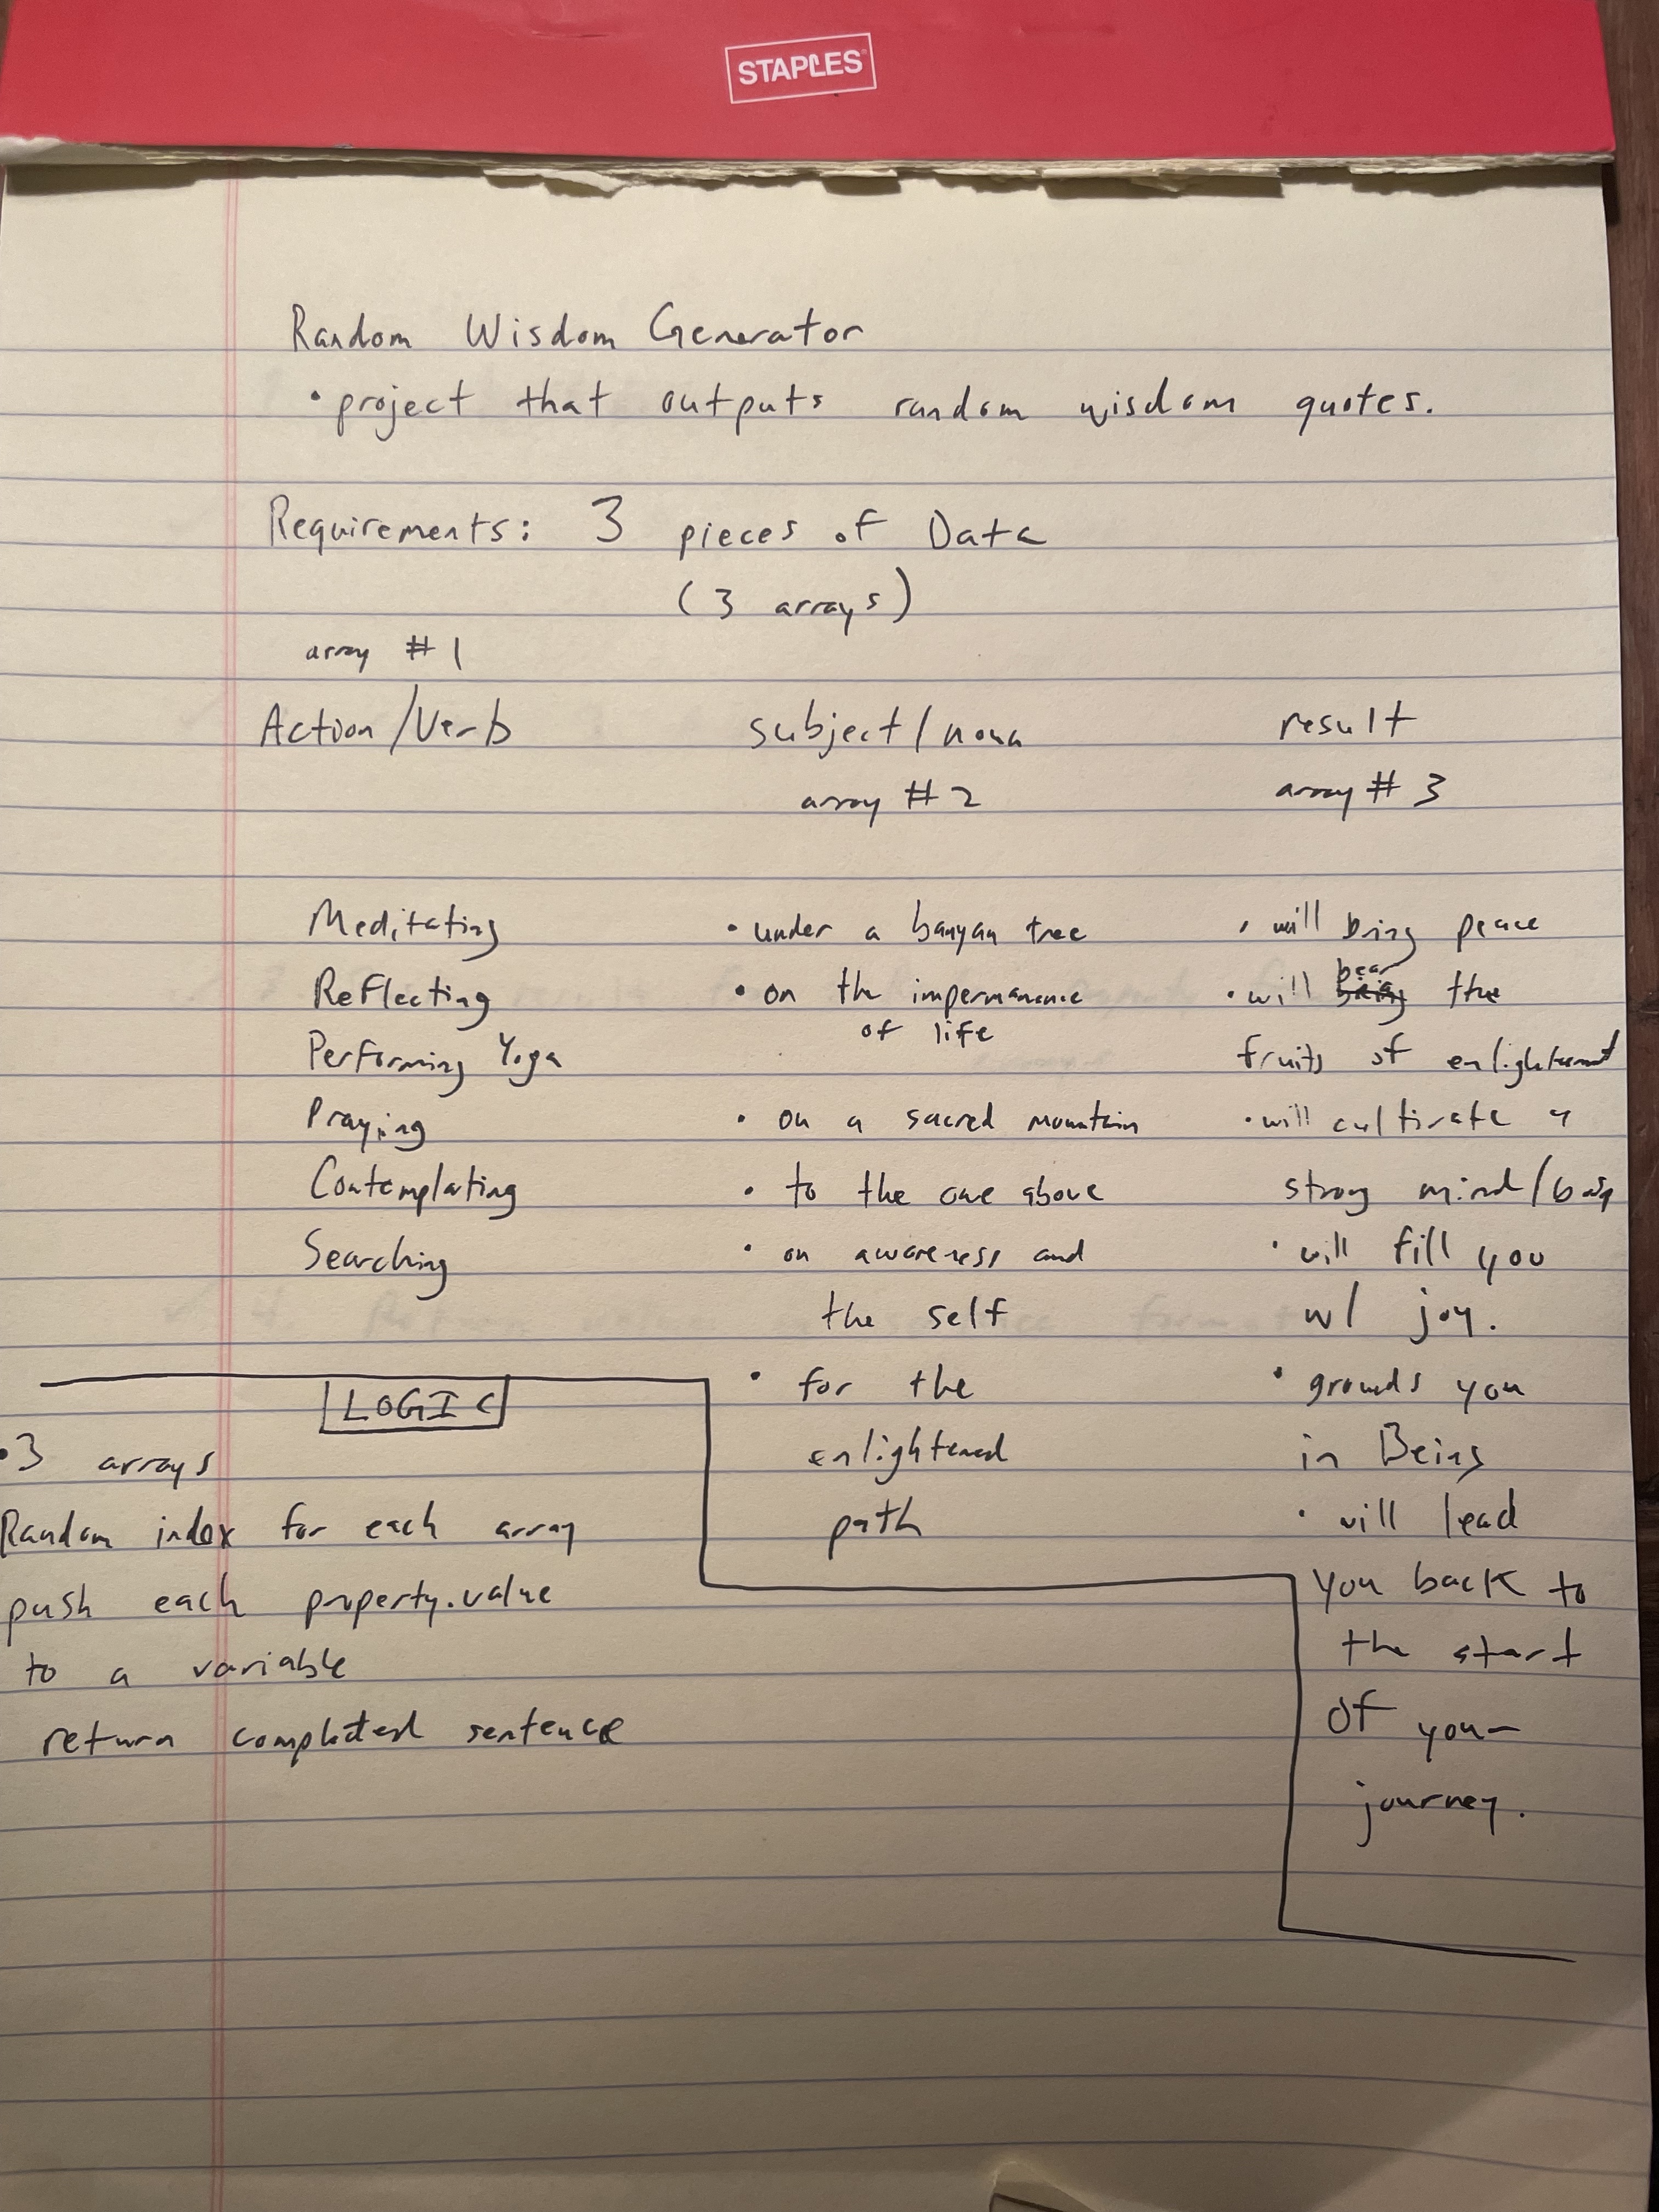 STAPLES
Random Wisdom Generator
• project that outputs random wisdom quotes.
Requirements: 3 pieces of Data
(3 arrays)
array #1
Action/Verb
subject/noun
result
array #2
array #3
Meditating
Reflecting
Performing Yoga
Praying
Contemplating
Searching
• under a banyan tree
• on the impermanence
of life
• on a sacred mountain
• to the one above
• on awareness and
the self
• for the
enlightened
path
• will bring peace
• will bear the
fruits of enlightenment
• will cultivate a
strong mind/
• will fill you
w/ joy.
• grounds you
in Being
• will lead
you back to
the start
of your
journey.
LOGIC
• 3 arrays
Random index for each array
push each property.value
to a variable
return completed sentence